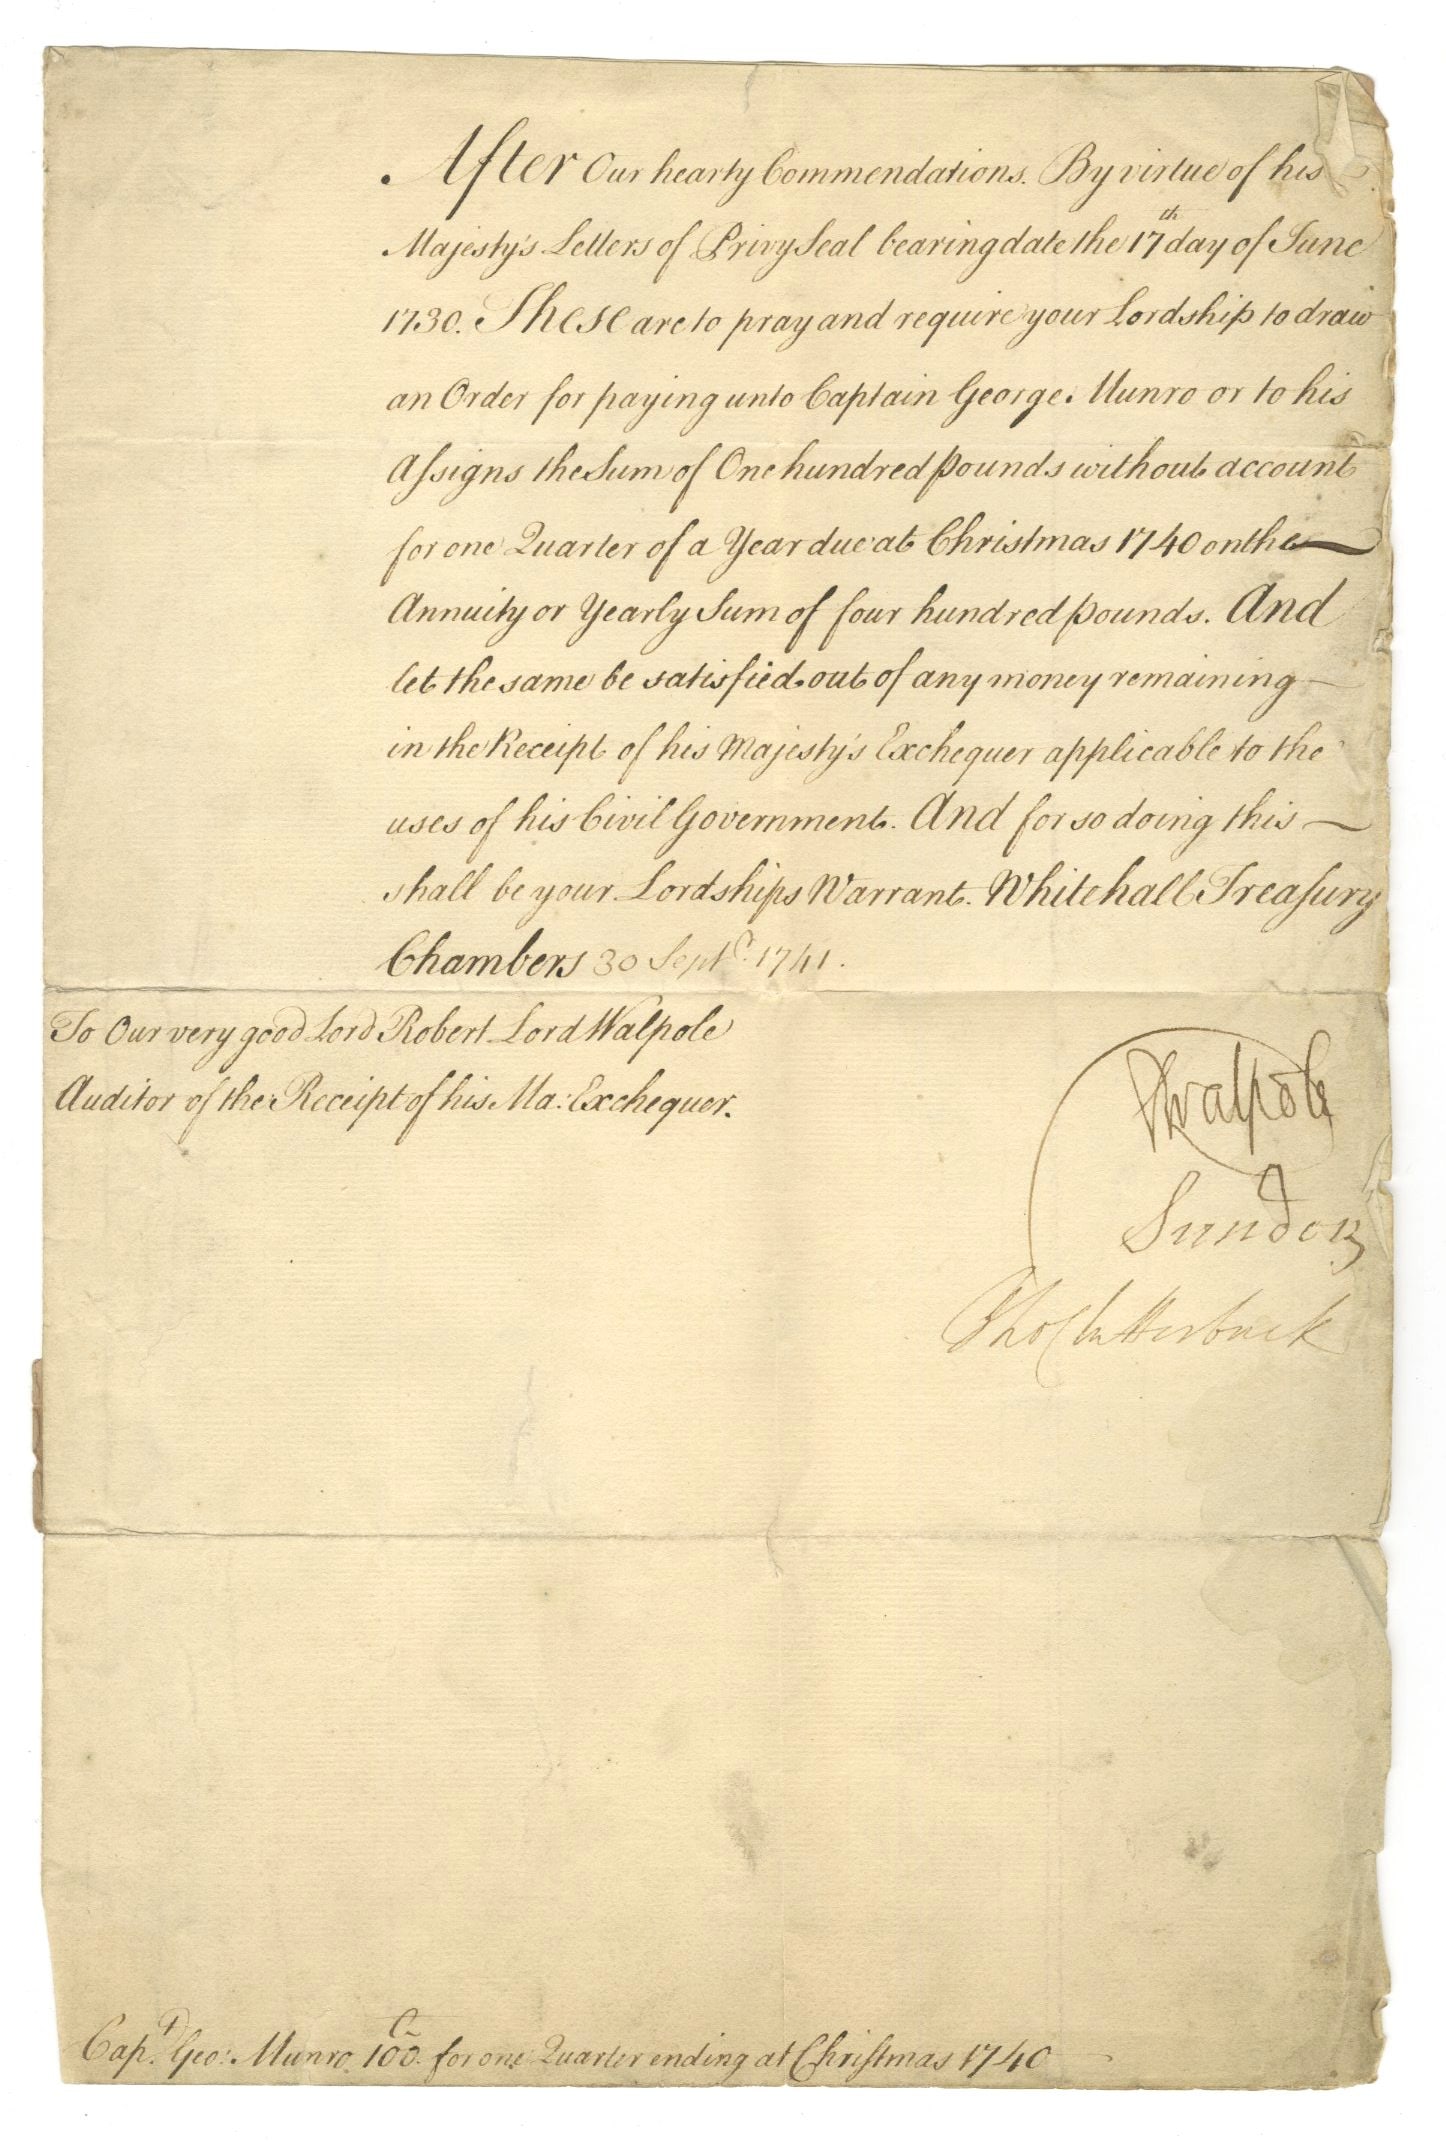 After Our hearty Commendations. By virtue of his
Majesty's Letters of Privy Seal bearing date the 17th day of June
1730. These are to pray and require your Lordship to draw
an Order for paying unto Captain George Munro or to his
Assigns the Sum of One hundred pounds without account
for one Quarter of a Year due at Christmas 1740 on the
Annuity or Yearly Sum of four hundred pounds. And
let the same be satisfied out of any money remaining
in the Receipt of his Majesty's Exchequer applicable to the
uses of his Civil Government. And for so doing this
shall be your Lordships Warrant. Whitehall Treasury
Chambers 30 Septr. 1741.
To Our very good Lord Robert Lord Walpole
Auditor of the Receipt of his Ma: Exchequer.
RWalpole
Sundon
Tho Clutterbuck
Capt. Geo: Munro 100 for one Quarter ending at Christmas 1740